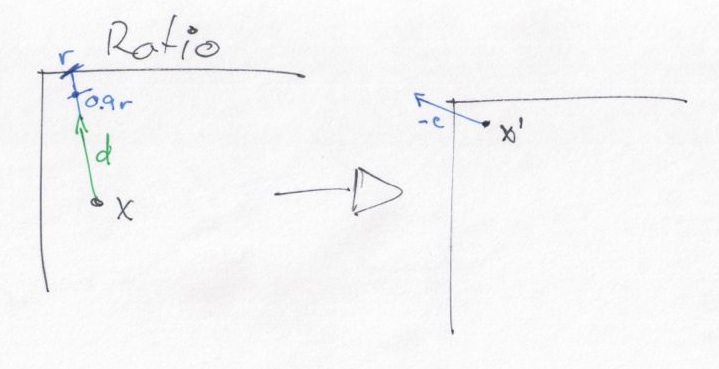 Ratio
r
0.9r
d
X
-c
X'